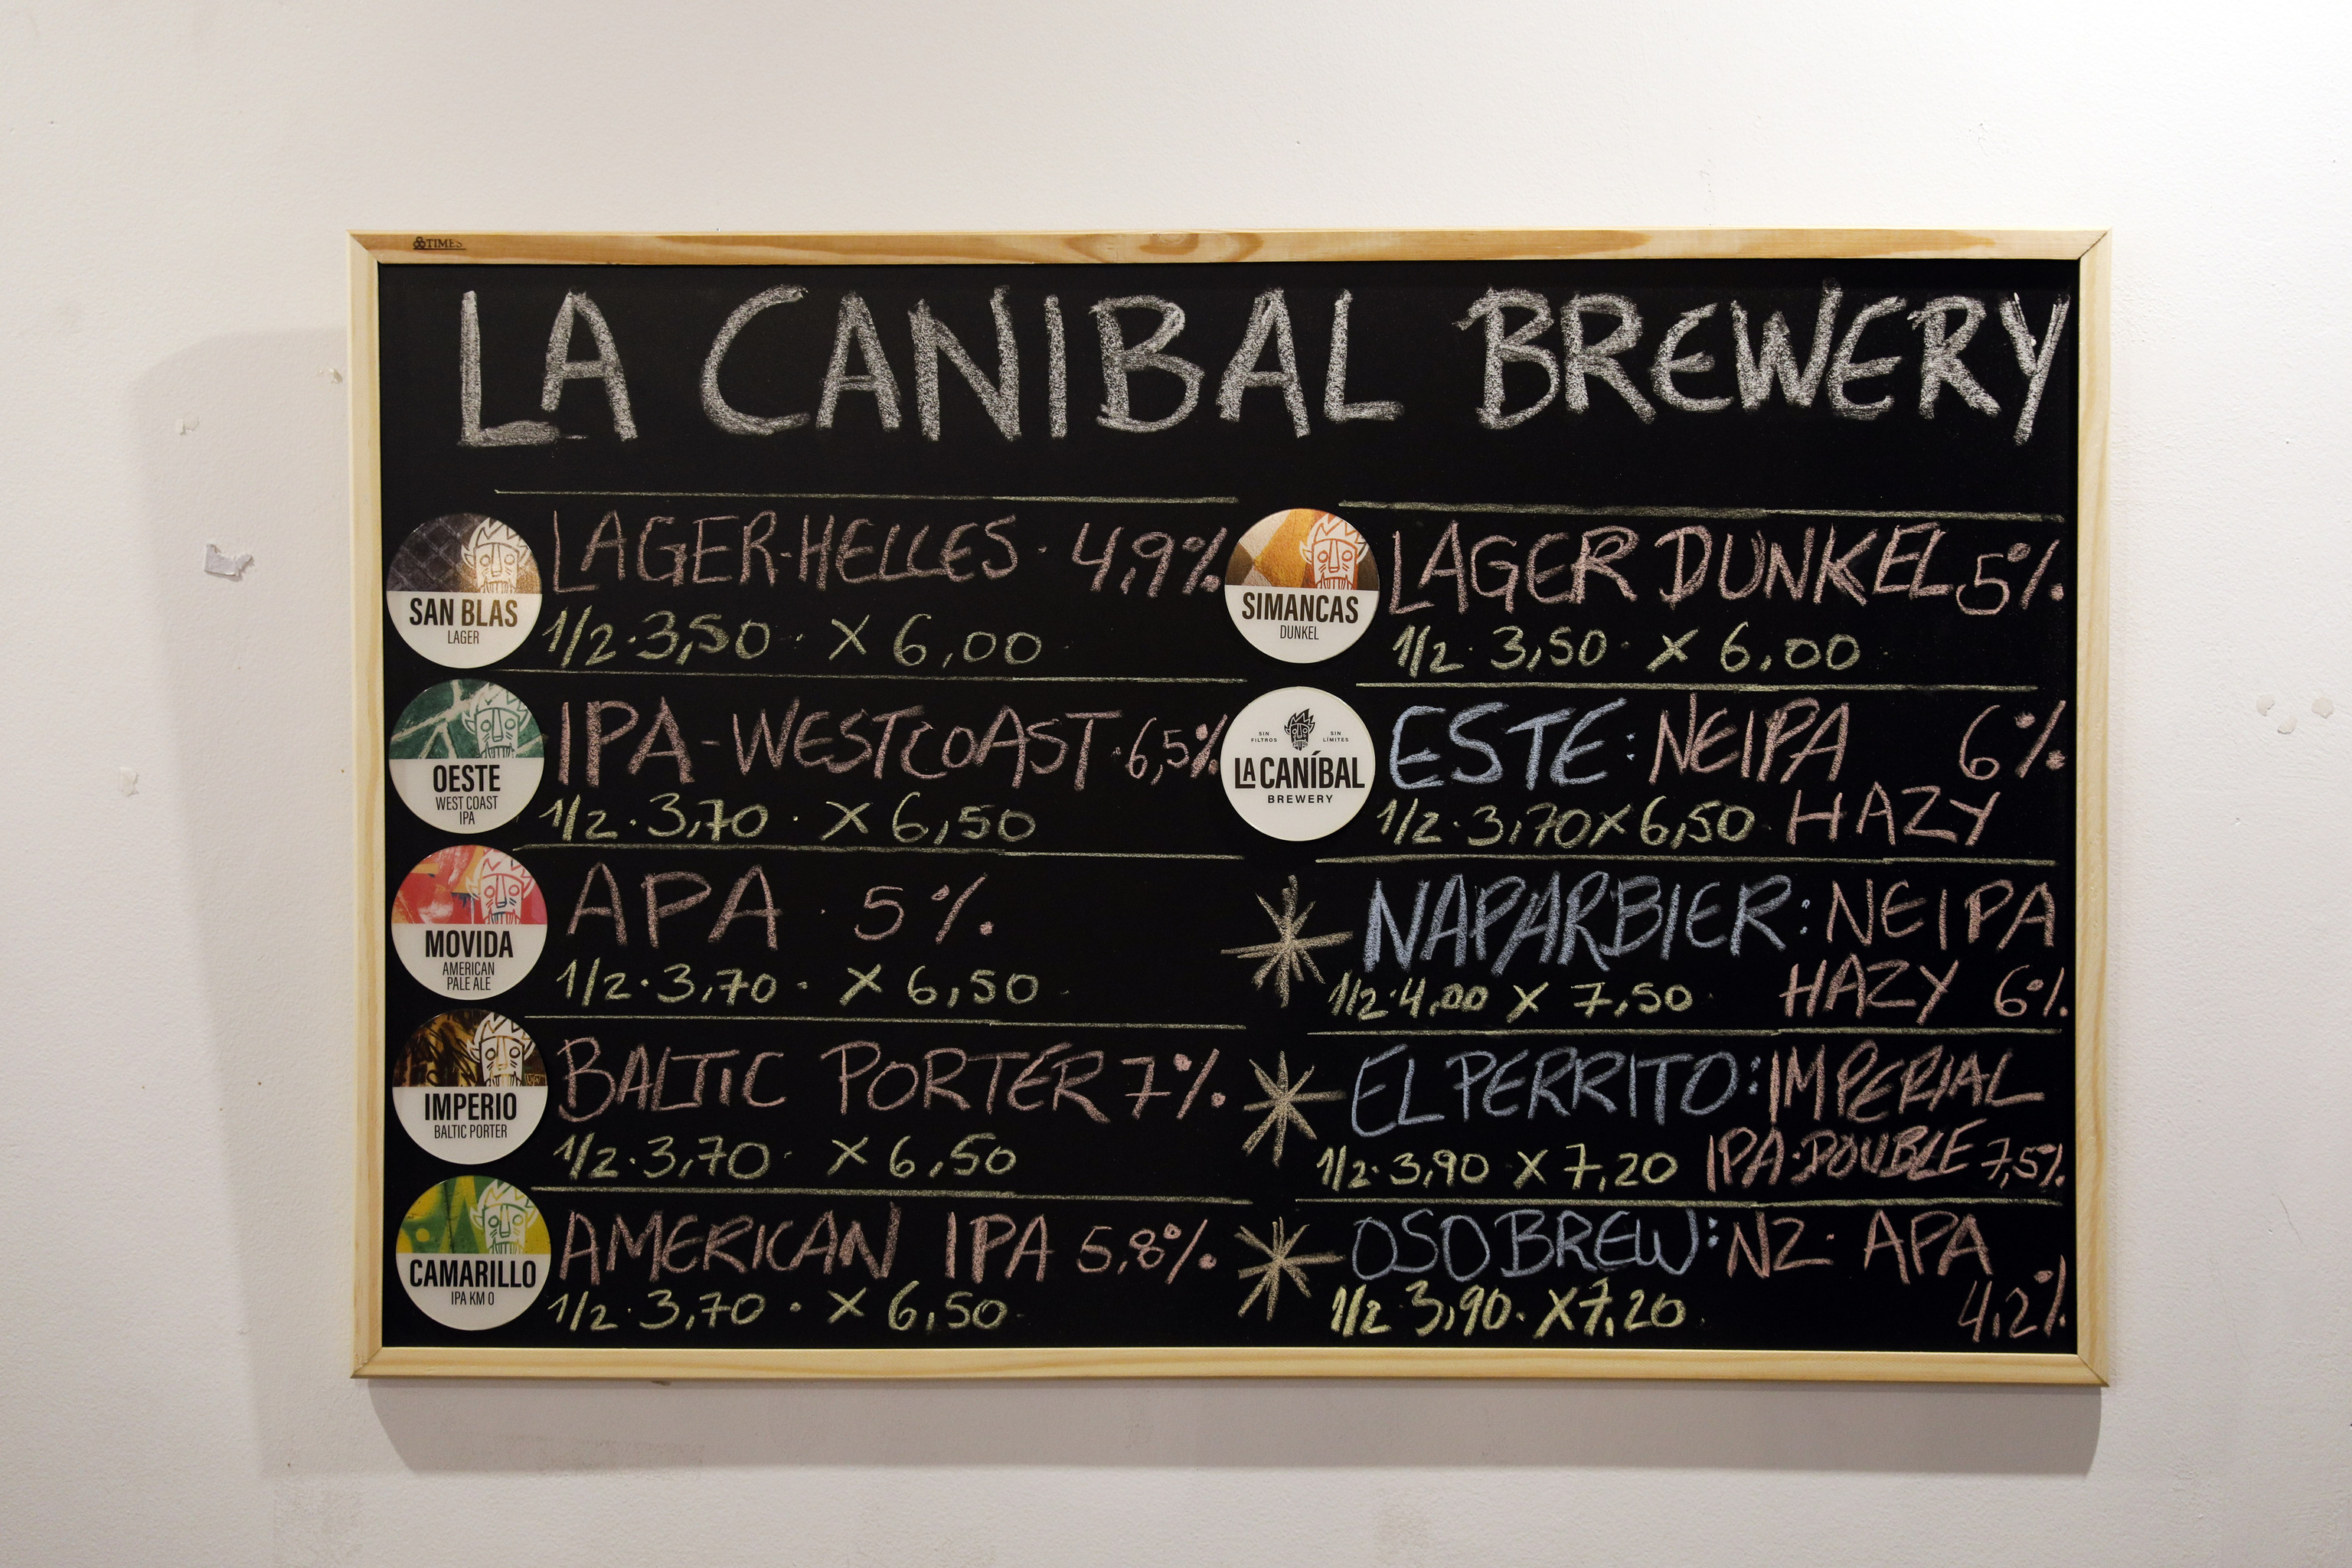 TIMES
LA CANIBAL BREWERY
SAN BLAS
LAGER
LAGER-HELLES · 4,9%
1/2·3,50 · X 6,00
OESTE
WEST COAST
IPA
IPA-WESTCOAST·6,5%
1/2·3,70 · X 6,50
MOVIDA
AMERICAN
PALE ALE
APA · 5%
1/2·3,70 · X 6,50
IMPERIO
BALTIC PORTER
BALTIC PORTER 7%
1/2·3,70 · X 6,50
CAMARILLO
IPA KM 0
AMERICAN IPA 5,8%
1/2·3,70 · X 6,50
SIMANCAS
DUNKEL
LAGER DUNKEL 5%
1/2·3,50 · X 6,00
SIN FILTROS SIN LÍMITES
LA CANÍBAL
BREWERY
ESTE: NEIPA 6%
1/2·3,70X6,50 HAZY
NAPARBIER: NEIPA
1/2·4,00 X 7,50 HAZY 6%
EL PERRITO: IMPERIAL
1/2·3,90 X 7,20 IPA·DOUBLE 7,5%
OSO BREW: NZ· APA
1/2 3,90· X7,20 4,2%